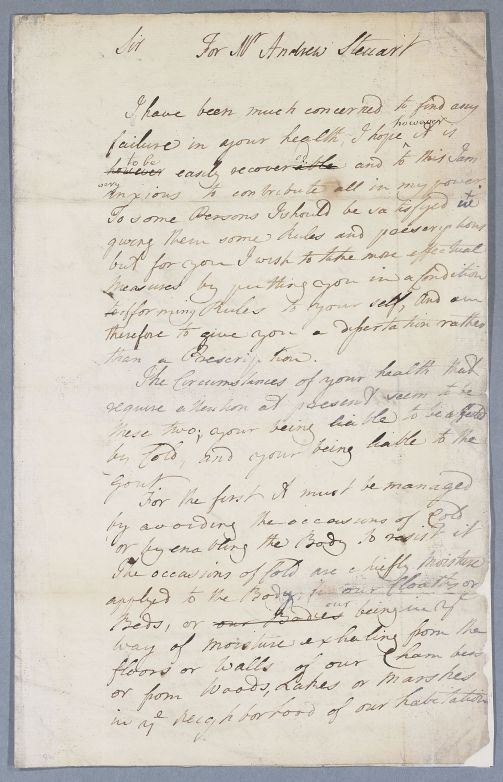 Sir For Mr Andrew Steuart
I have been much concerned to find any
failure in your health, I hope however it is
however to be easily recoverable ed and to this I am
very anxious to contribute all in my power.
To some Persons I should be satisfyed in
giving them some Rules and prescriptions
but for you I wish to take more effectual
measures by putting you in a Condition
to forming Rules to your self, and am
therefore to give you a dissertation rather
than a Prescription.
The Circumstances of your health that
require attention at present seem to be
these two; your being liable to be affected
by Cold, and your being liable to the
Gout
For the first it must be managed
by avoiding the occasions of Cold
or by enabling the Body to resist it
The occasions of Cold are chiefly moisture
applied to the Body, in our Cloaths or
Beds, or our Bodies our being in ye
way of moisture exhaling from the
floors or walls of our Chambers
or from Woods, Lakes or Marshes
in ye Neighborhood of our habitation